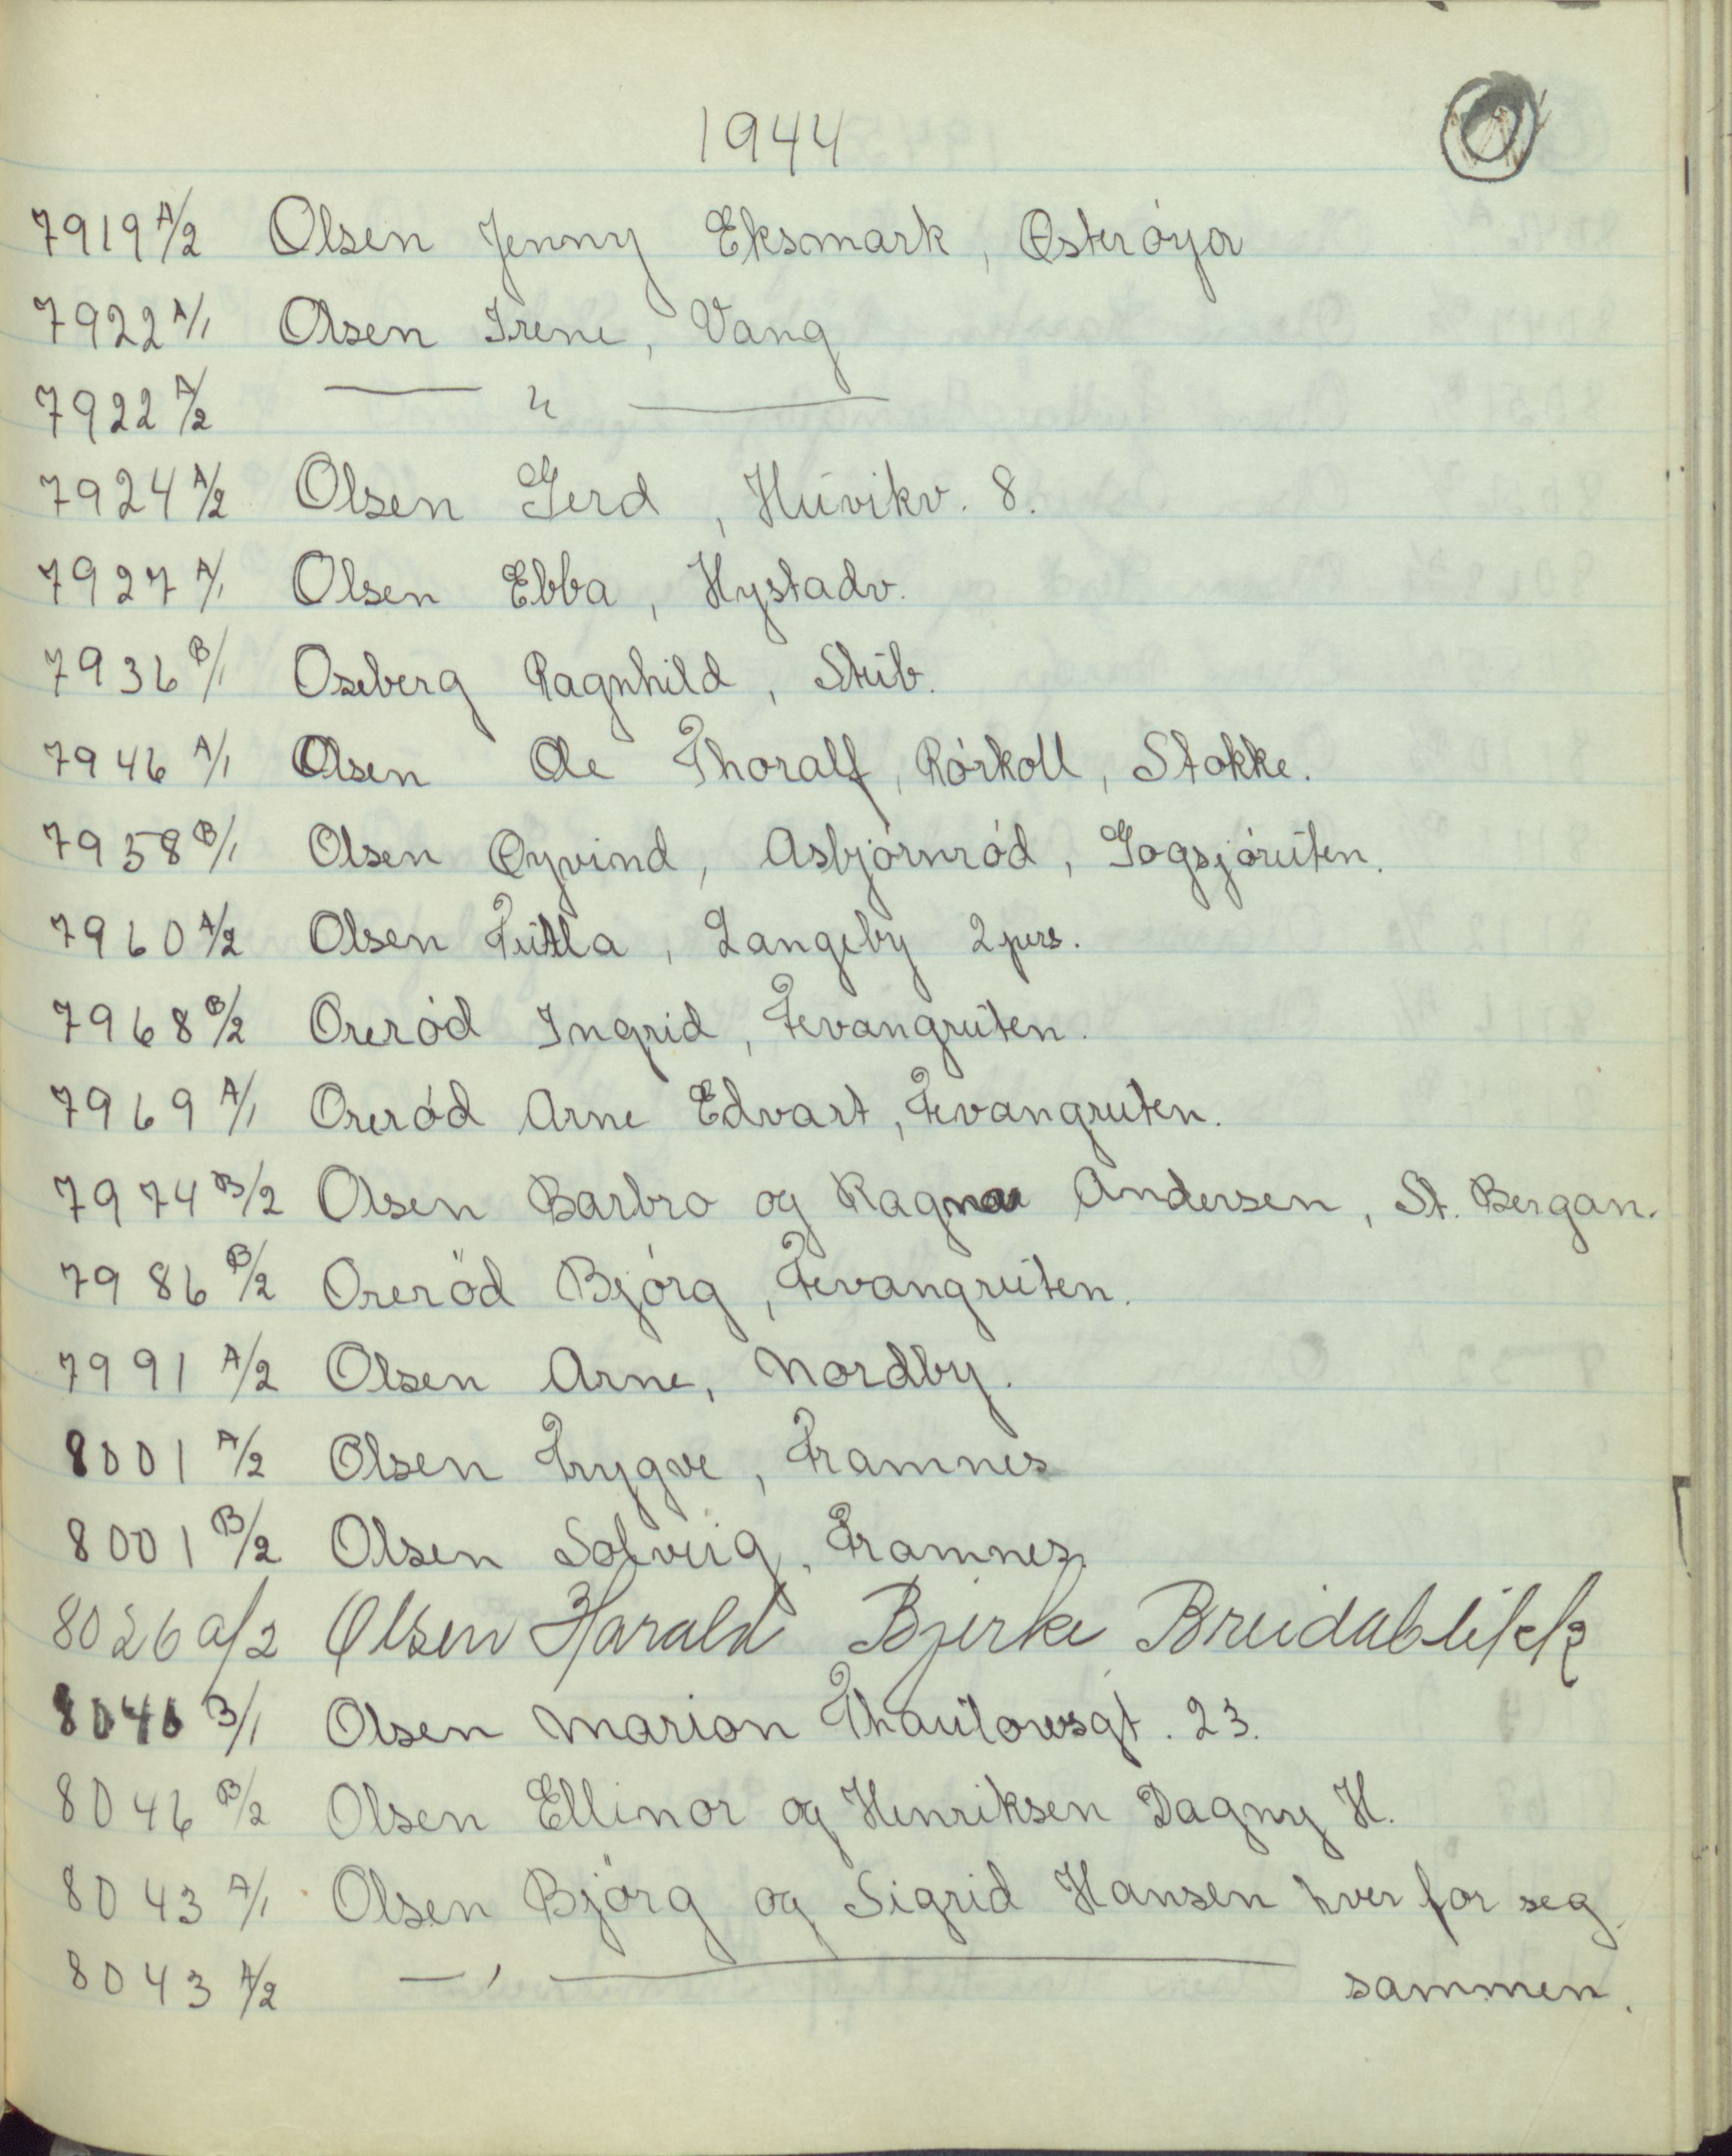 1944
O
7919 A/2 Olsen Jenny Eksmark, Østerøya
7922 A/1 Olsen Irene, Vang
7922 A/2 —— " ——
7924 A/2 Olsen Gerd, Huvikv. 8.
7927 A/1 Olsen Ebba, Hystadv.
7936 B/1 Oseberg Ragnhild, Stub.
7946 A/1 Olsen Ole Thoralf, Rórkoll, Stokke.
7958 B/1 Olsen Øyvind, Asbjórnród, Gogsjóruten.
7960 A/2 Olsen Tulla, Langeby 2 pers.
7968 B/2 Oreród Ingrid, Fevangruten.
7969 A/1 Oreród Arne Edvart, Fevangruten.
7974 B/2 Olsen Barbro og Ragnar Andersen, St. Bergan.
7986 B/2 Oreröd Bjórg, Fevangruten.
7991 A/2 Olsen Arne, Nordby.
8001 A/2 Olsen Trygve, Framnes
8001 B/2 Olsen Solveig, Framnes.
8026 a/2 Olsen Harald Bjerke Breidablikk
8046 B/1 Olsen Marion Thaulowsgt. 23.
8046 B/2 Olsen Ellinor og Henriksen Dagny H.
8043 A/1 Olsen Björg og Sigrid Hansen hver for seg
8043 A/2 — ' —— sammen.